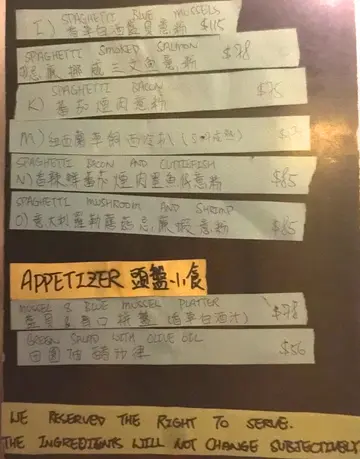 SPAGHETTI BLUE MUSSELS
I) 香草白酒藍貝意粉 $115
SPAGHETTI SMOKED SALMON
挪威三文魚意粉 $78
SPAGHETTI BACON
K) 蕃茄煙肉意粉
M)
SPAGHETTI BACON AND CUTTLEFISH
N) 香辣鮮蕃茄煙肉墨魚仔意粉 $85
SPAGHETTI MUSHROOM AND SHRIMP
O) 意大利 蝦意粉 $85
APPETIZER 頭盤小食
MUSSEL & BLUE MUSSEL PLATTER
青口拼盤 (香草白酒汁) $78
GREEN SALAD WITH OLIVE OIL
田園油醋沙律 $56
WE RESERVED THE RIGHT TO SERVE.
THE INGREDIENTS WILL NOT CHANGE SUBJECTIVELY